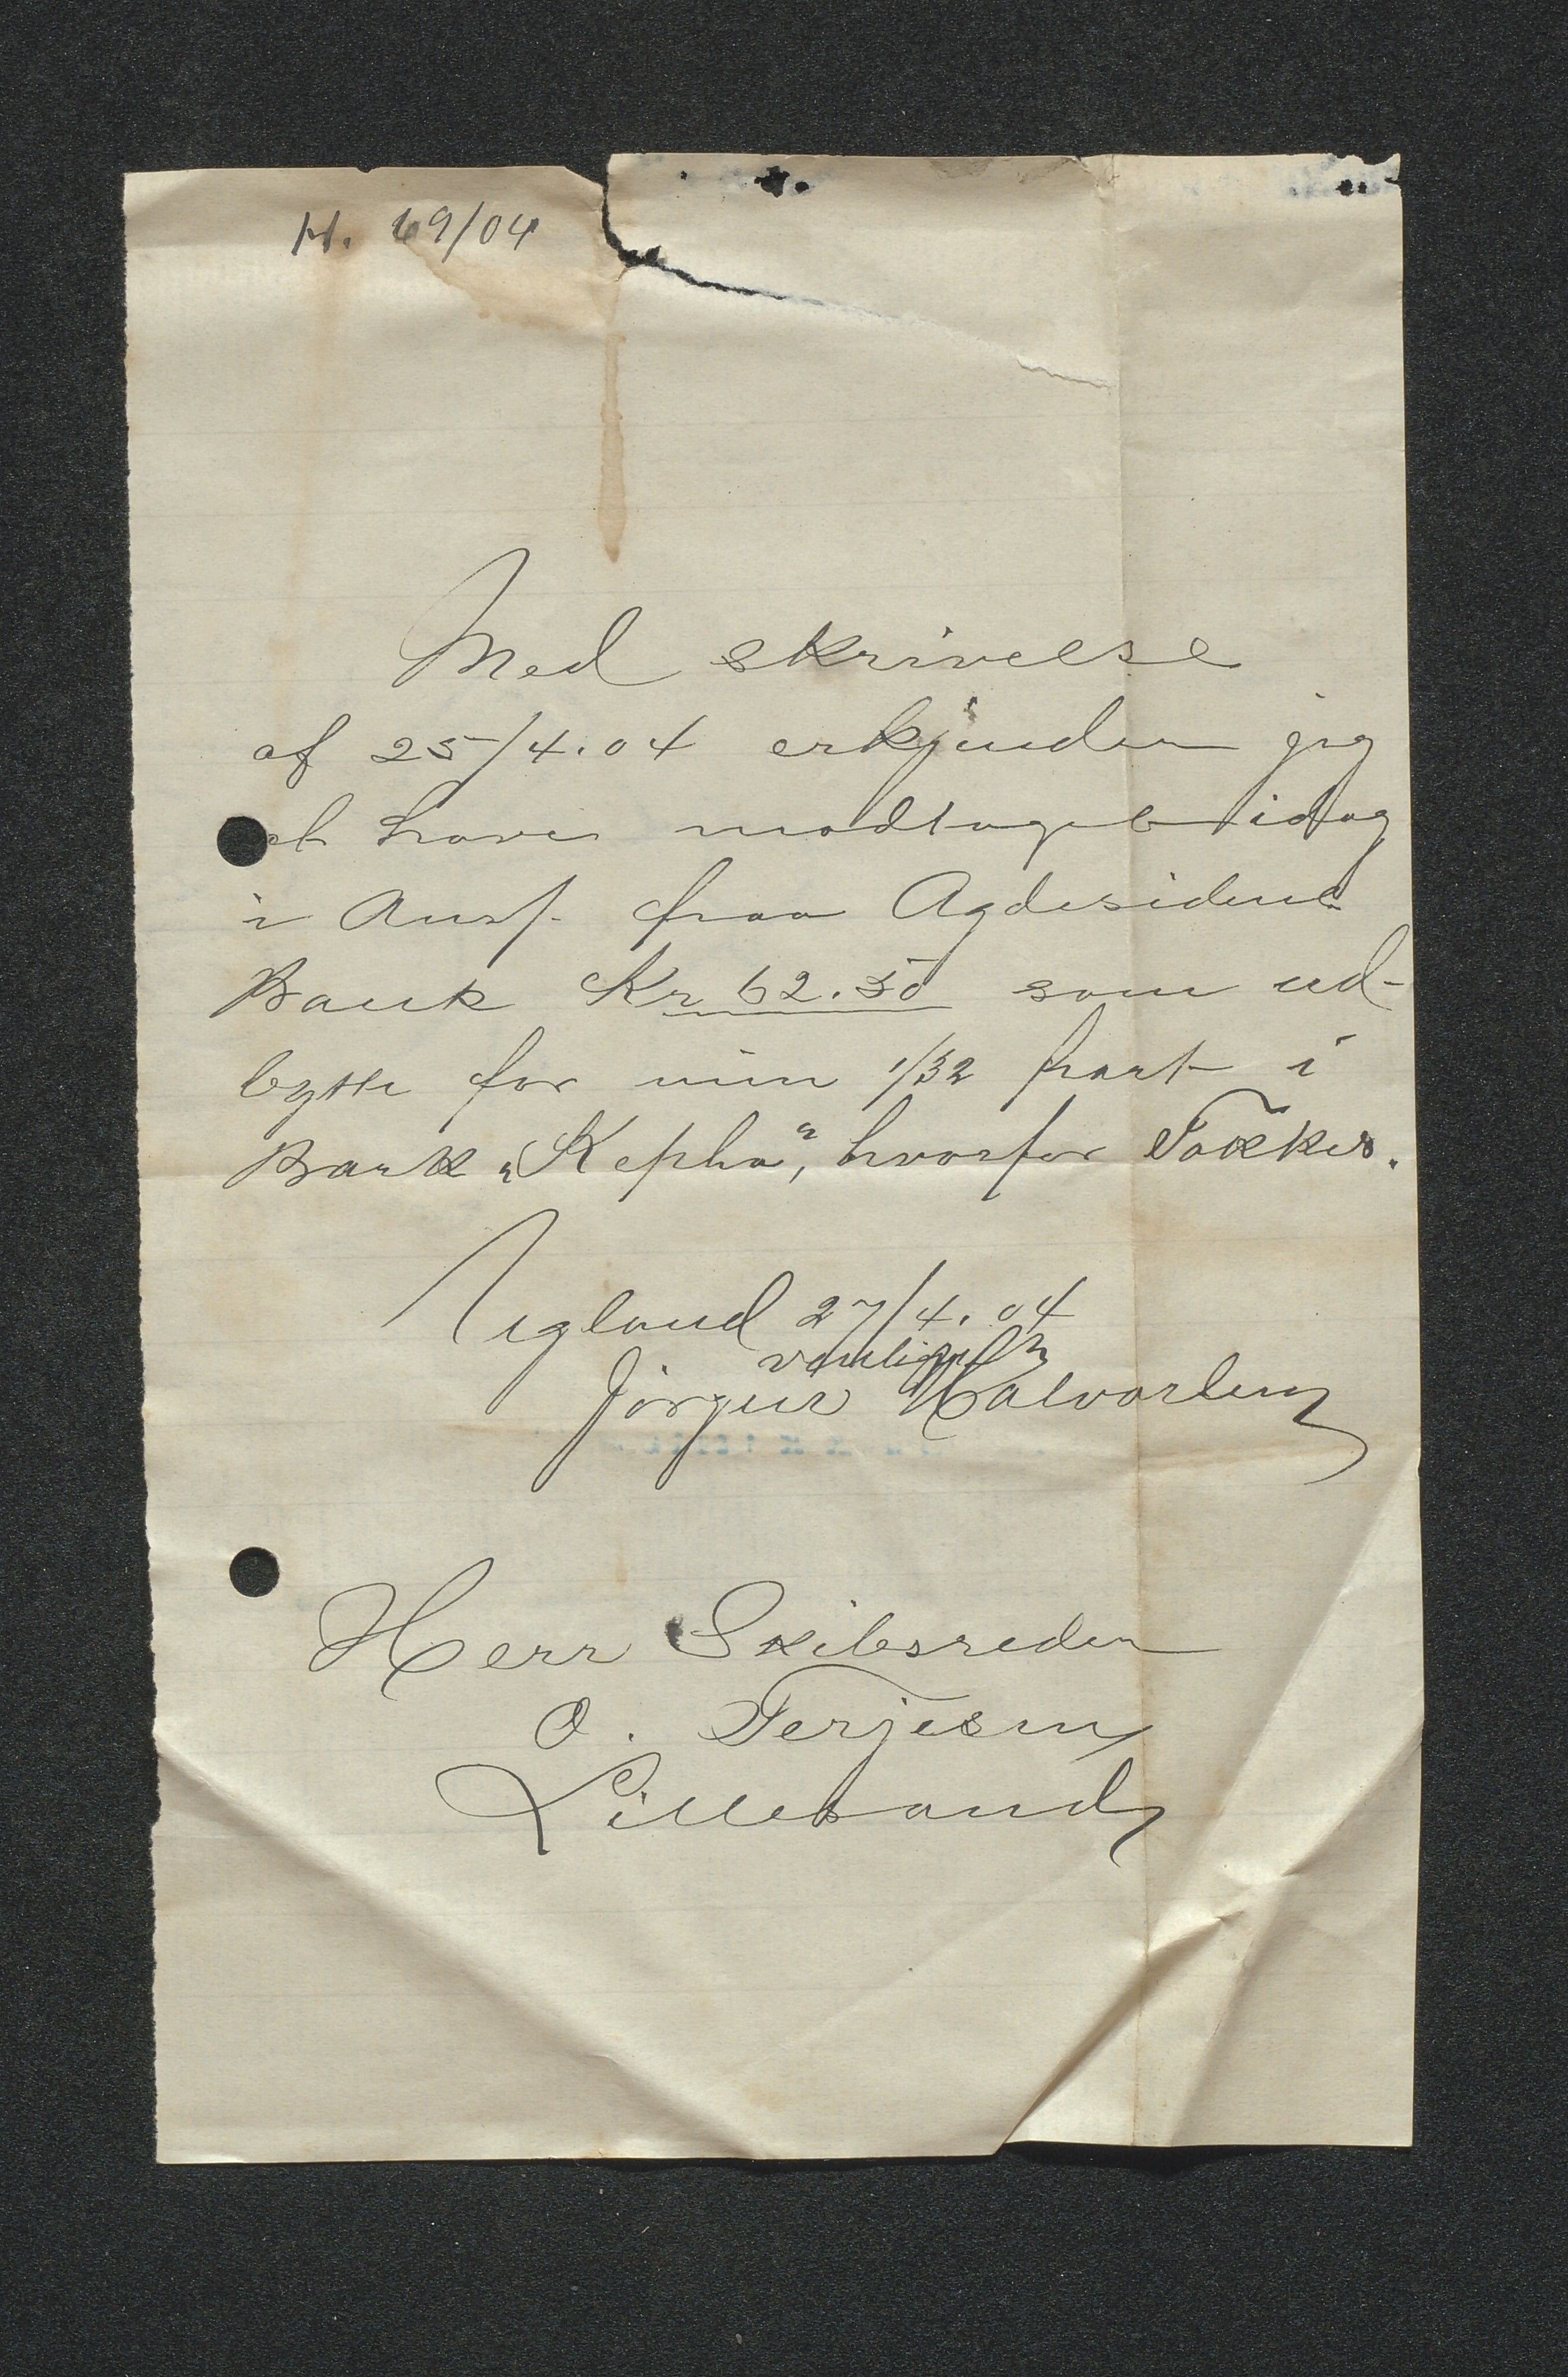 H. 69/04
Med skrivelse
af 25/4.04 erkjender jeg
at have modtaget idag
i Anvf. fraa Agdesidens
Bank Kr 62.50 som ud-
bytte for min 1/32 part i
Bark „Kepha“, hvorfor Takkes.
Igland 27/4.04
venligst
Jörgen Halvorsen
Herr Skibsreder
O. Terjesen
Lillesand